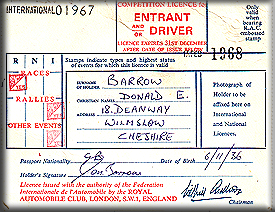 INTERNATIONAL 01967
COMPETITION LICENCE
ENTRANT
AND OR DRIVER
LICENCE EXPIRES 31ST DECEMBER
AFTER DATE OF ISSUE
1968
Only
valid
when
bearing
R.A.C.
embossed
stamp
R N I
Stamps indicate types and highest status of events for which this Licence is valid
RACES
RALLIES
OTHER EVENTS
SURNAME OF HOLDER
BARROW
CHRISTIAN NAMES
DONALD E.
ADDRESS
18. DEANWAY
WILMSLOW
CHESHIRE
Photograph of
Holder to be
affixed here on
International
Licences
Passport Nationality GB Date of Birth 6/11/36
Signed Don Barrow
Licence issued with the authority of the Federation
Internationale de l'Automobile by the ROYAL
AUTOMOBILE CLUB, LONDON, S.W.1, ENGLAND
Chairman